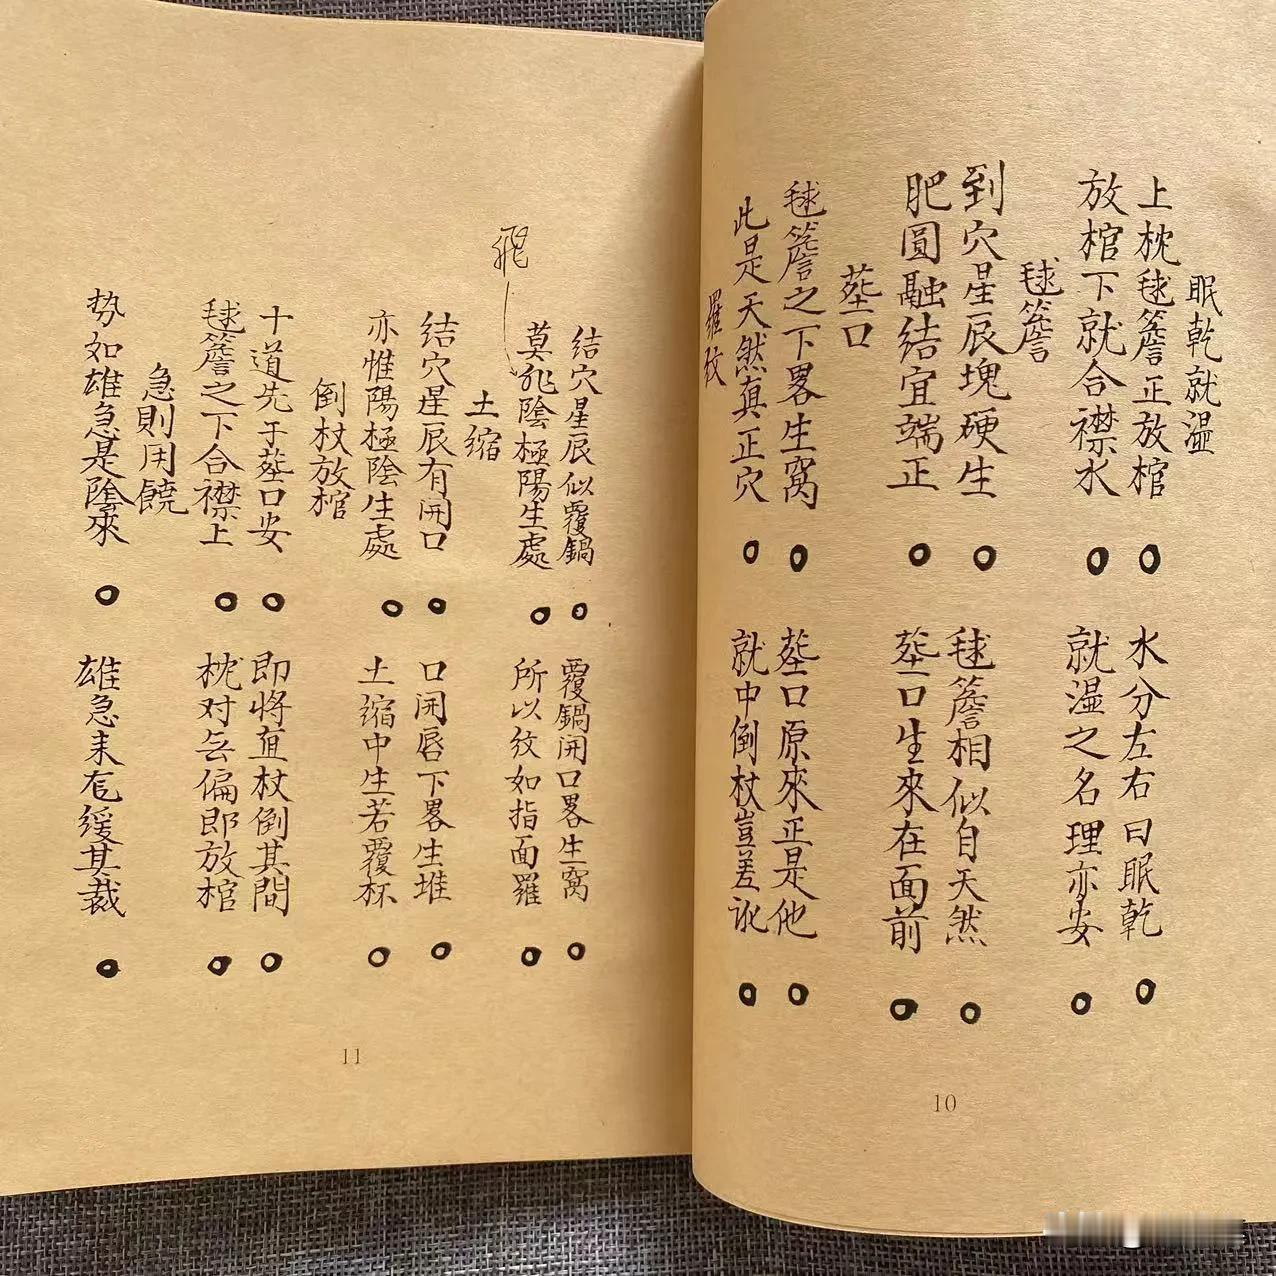 眠乾就湿
上枕毬簷正放棺 水分左右曰眠乾
放棺下就合襟水 就湿之名理亦安
毬簷
到穴星辰塊硬生 毬簷相似自天然
肥圓融結宜端正 葬口生來在面前
葬口
毬簷之下畧生窝 葬口原來正是他
此是天然真正穴 就中倒杖豈差讹
羅紋
10
结穴星辰似覆鍋 覆鍋開口畧生窝
莫非陰極陽生處 所以纹如指面羅
土缩
结穴星辰有開口 口開唇下畧生堆
亦惟陽極陰生處 土缩中生若覆杯
倒杖放棺
十道先于葬口安 即將直杖倒其間
毬簷之下合襟上 枕对无偏即放棺
急則用饒
势如雄急是陰來 雄急来在缓其裁
11